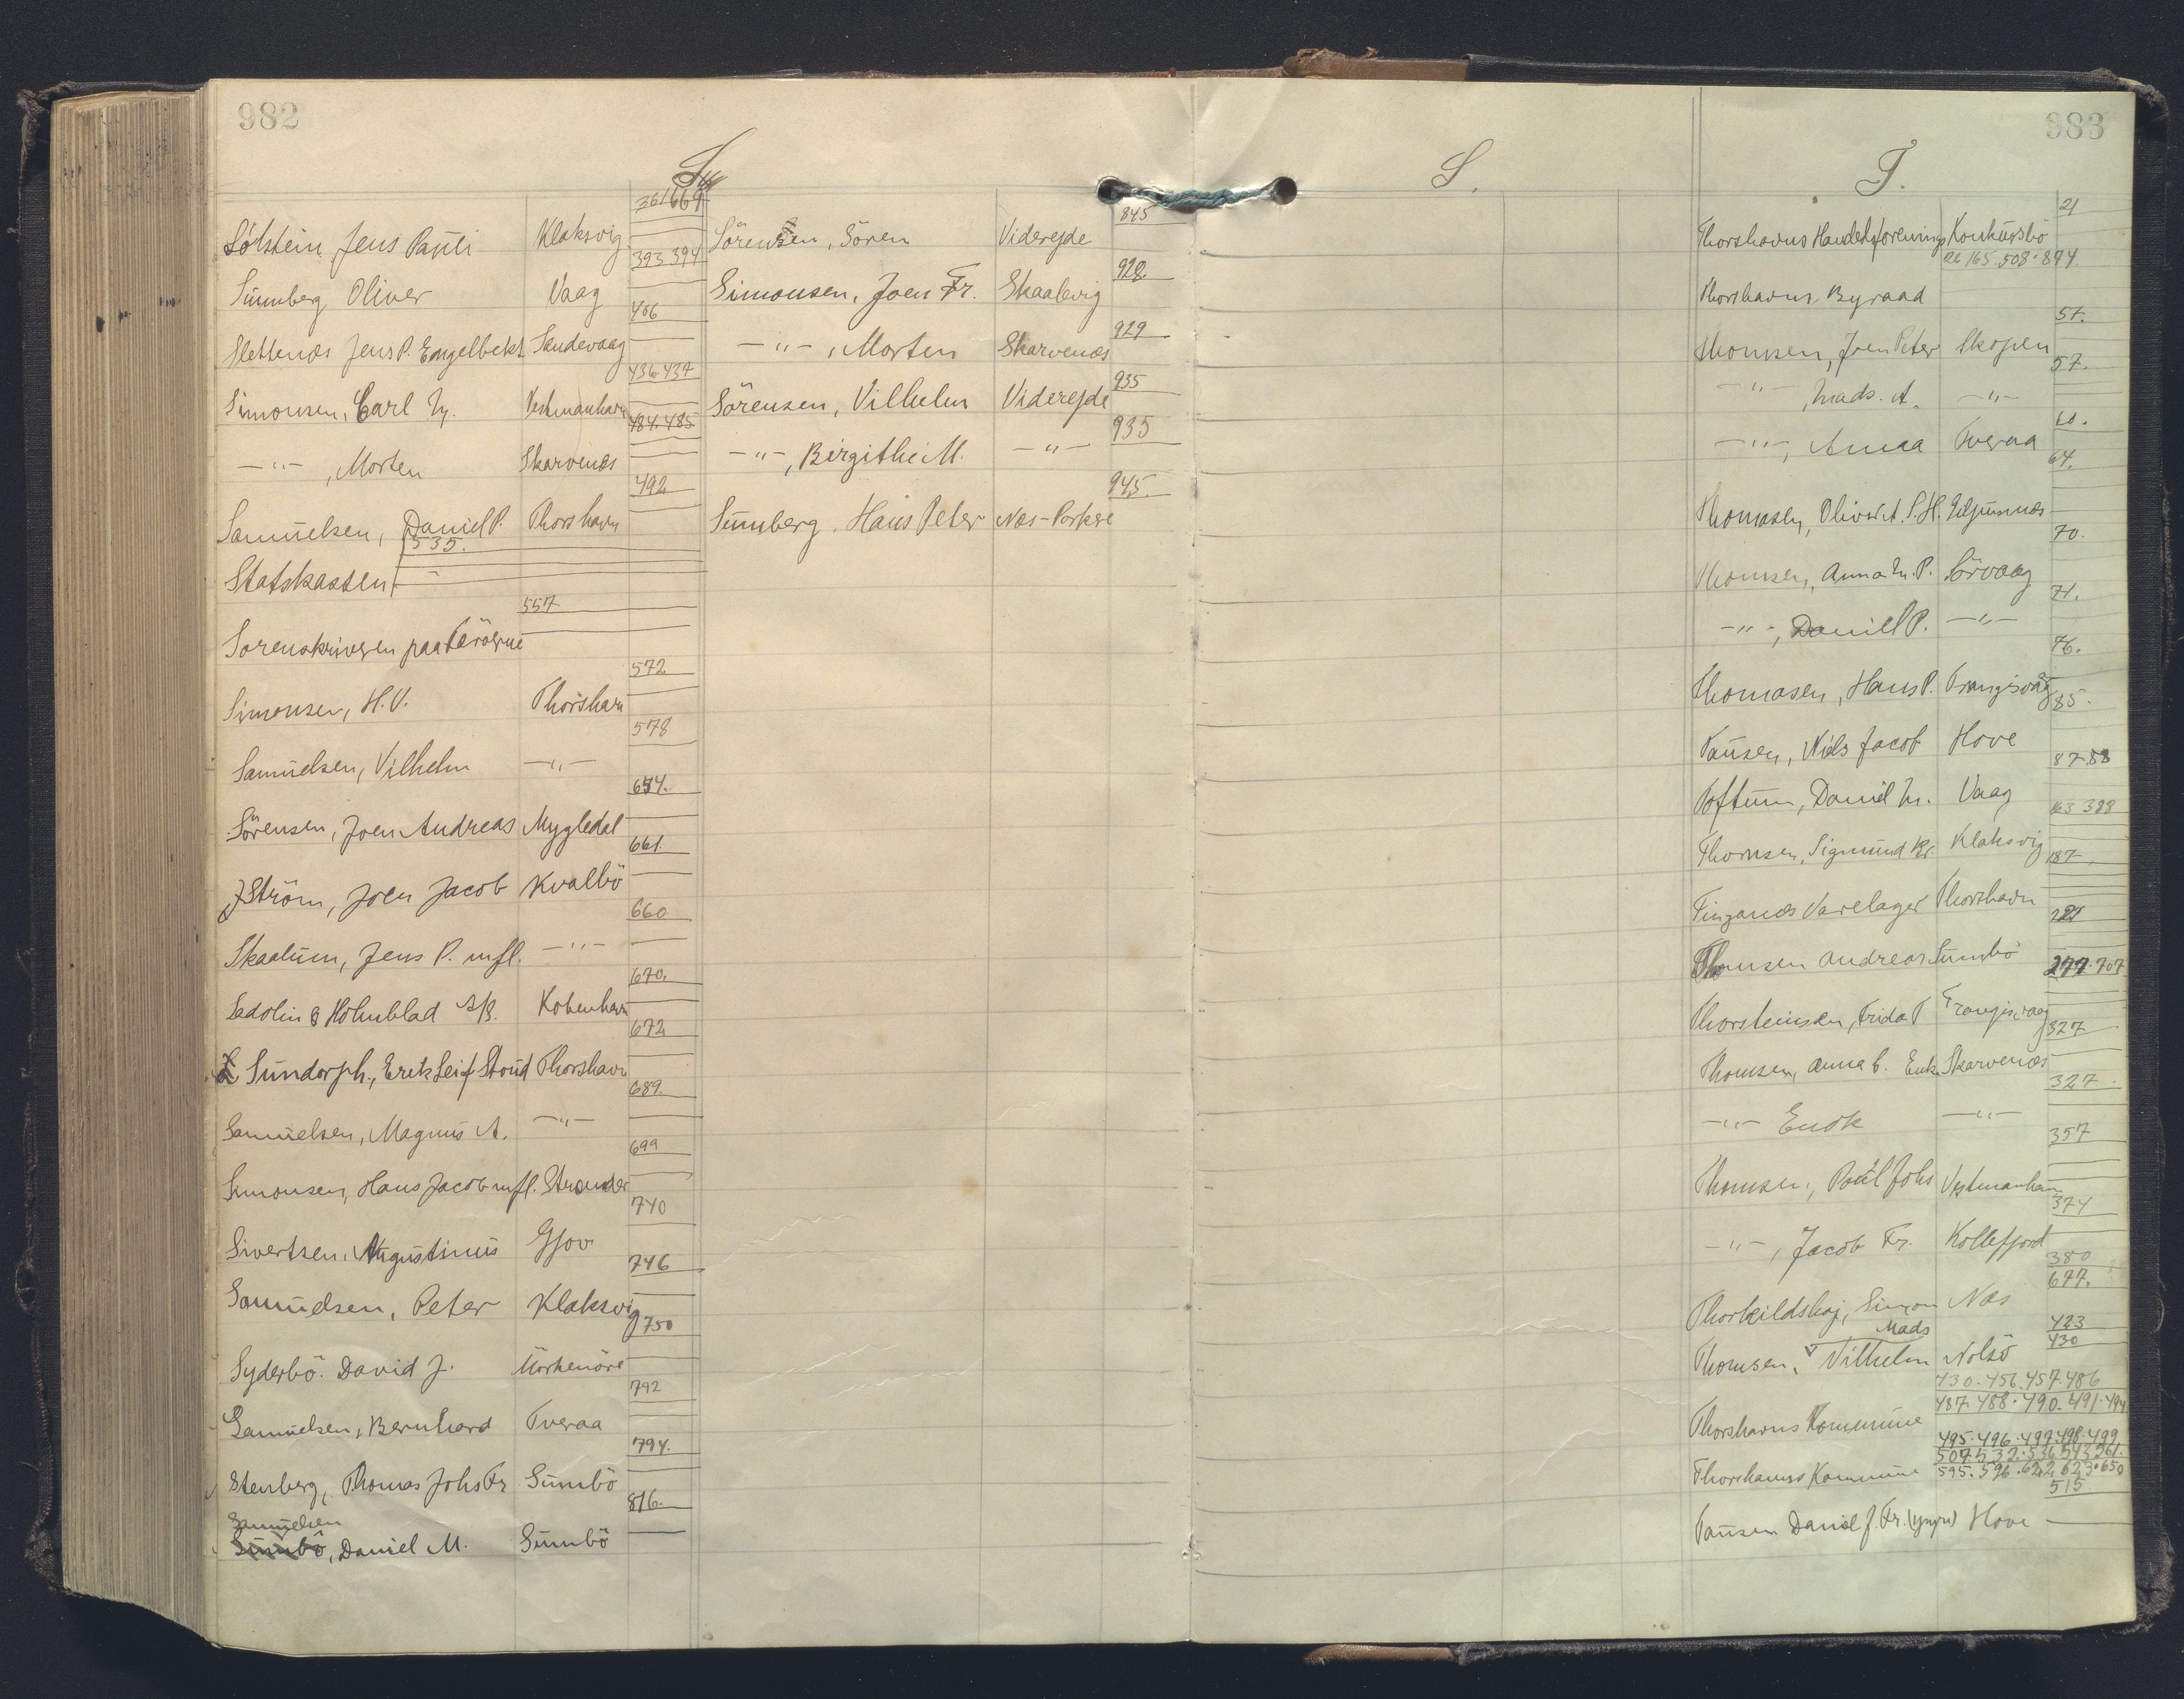 982
S
361 669
Sólstein Jens Pauli Klaksvig
393 394
Sumberg Oliver Vaag
406
Slettenæs Jens P. Engelbrekt Sandevaag
436-437
Simonsen, Carl M. Vestmanhavn
484. 485
—"—, Morten Skarvenæs
492
Samuelsen, Daniel P. Thorshavn
535.
Statskassen
557
Sorenskriveren paa Færöerne
572
Simonsen, H.V. Thorshavn
578
Samuelsen, Vilhelm —"—
654.
Sörensen, Joen Andreas Mygledal
661.
Ström, Joen Jacob Kvalbö
660
Skaalum, Jens P. mfl. —"—
670.
Sadolin & Holmblad A/S. Köbenhavn
672
Sundorph., Erik Leif Stoud Thorshavn
689.
Samuelsen, Magnus A. —"—
699
Simonsen, Hans Jacob mfl. Strender
740
Sivertsen, Augustinus Gjov
746
Samuelsen, Peter Klaksvig
750
Syderbö. David J. Mörkenöre
792
Samuelsen, Bernhard Tveraa
794.
Stenberg, Thomas Johs Fr Sumbö
816.
Samuelsen
Sumbö, Daniel M. Sumbö
845
Sörensen, Sören Viderejde
928.
Simonsen, Joen Fr. Skaalevig
929
—"—, Morten Skarvenæs
935
Sörensen, Vilhelm Viderejde
935
—"—, Birgithe M. —"—
945.
Sumberg. Hans Peter Næs-Porkere
983
S.
T.
21
Thorshavns Handelsforenings Konkursbo
26 165. 508. 894.
Thorshavns. Byraad
57.
Thomsen, Joen Peter Skopen
57.
—"—, Mads. A. —"—
60.
—"—, Anna Tveraa
64.
Thomasen, Oliver A. S. H.
70.
Thomsen, Anna M. P. Sörvaag
71.
—"—, Daniel P. —"—
76.
Thomasen, Hans P. Trangisvåg
85.
Tausen, Niels Jacob Hove
87.88
Toftum, Daniel M. Vaag
163 388
Thomsen, Sigmund Kr. Klaksvig
187
Tinganæs Varelager Thorshavn
221
Thomsen Andreas Sumbö
277. 707
Thorsteinsen, Frida T Trangisvaag
327
Thomsen, Anna C. Enke Skarvenæs
327.
—"— Enok —"—
357
Thomsen, Poul Johs Vestmanhavn
374
—"—, Jacob Fr. Kollefjord
380
677.
Thorkildshøj, Simon Næs
423
Mads 430
Thomsen, Vilhelm Nolsö
430. 456. 457. 486
487. 488. 490. 491. 494
Thorshavns Kommune
495. 496. 497. 498. 499
507. 532. 536. 543. 561.
Thorshavns Kommune 595. 596. 622. 623. 650
515
Tausen Daniel J. Fr. (yngre) Hove